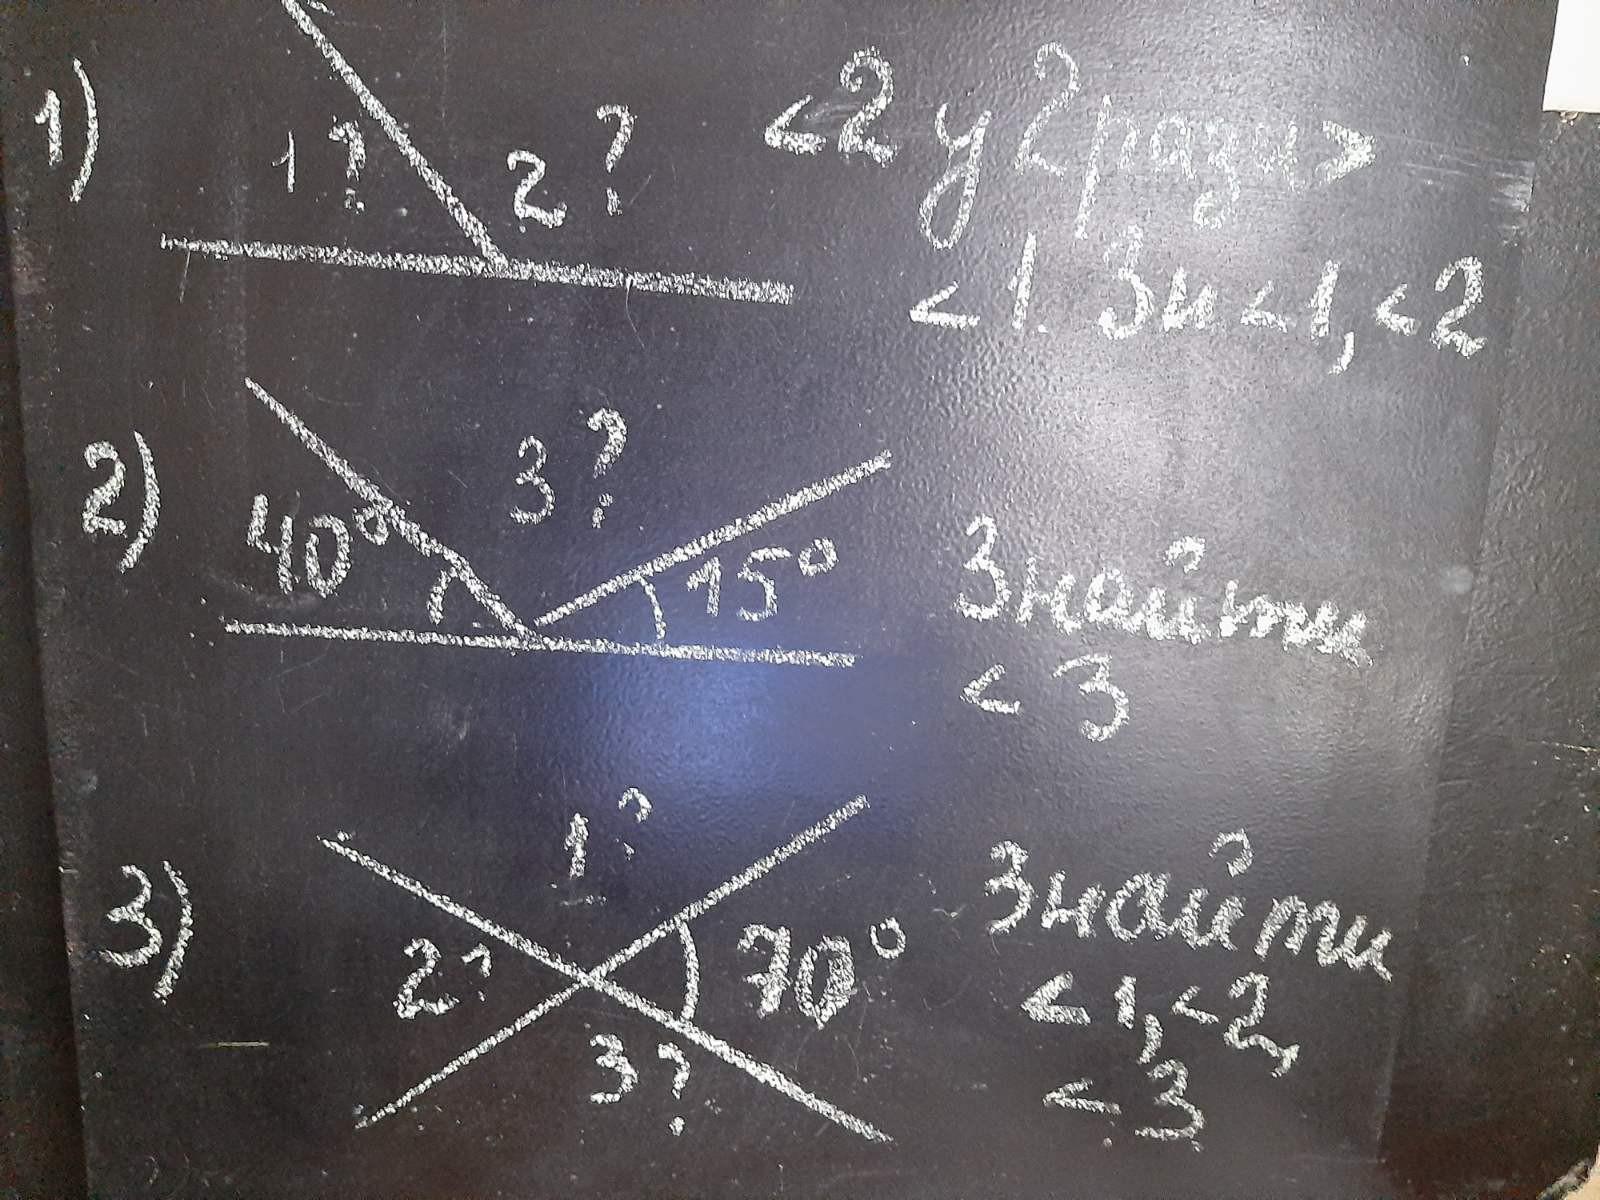 1)
1? 2?
<2 у 2 раза >
<1. Зн <1, <2
2)
40° 3? 15°
Знайти
<3
3)
1?
2? 70°
3?
Знайти
<1, <2,
<3